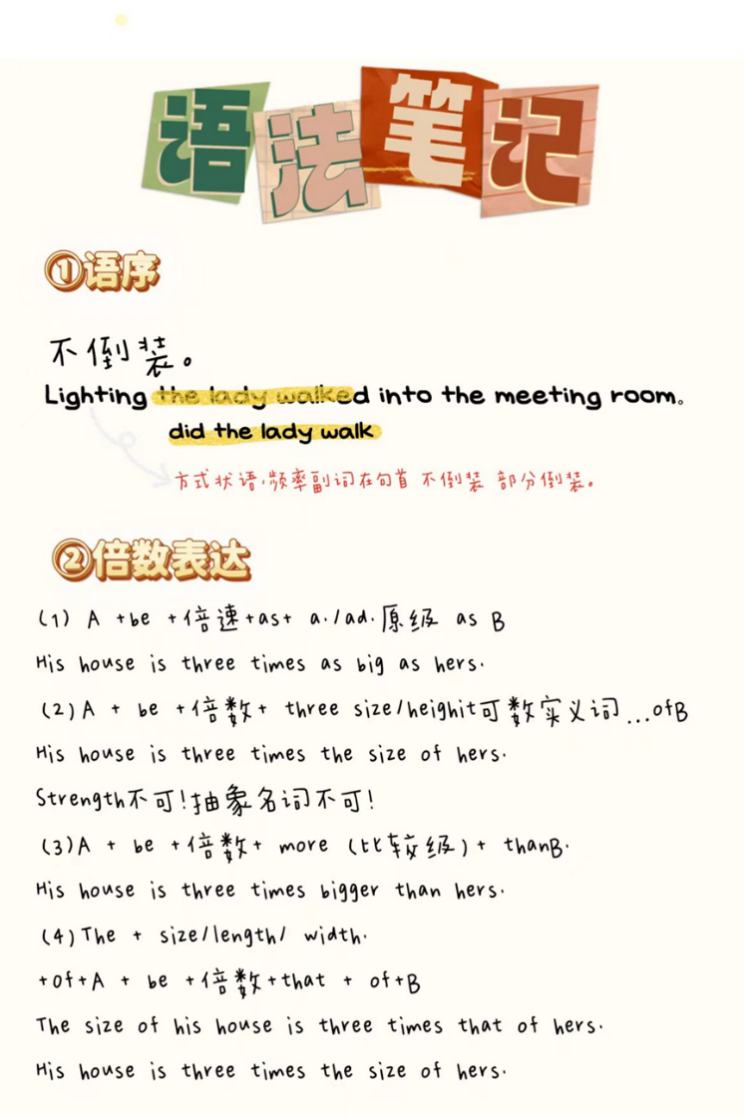 语法笔记
①语序
不倒装。
Lighting the lady walked into the meeting room。
did the lady walk
方式状语,频率副词在句首 不倒装 部分倒装。
②倍数表达
(1) A +be +倍速+as+ a./ad.原级 as B
His house is three times as big as hers.
(2)A + be +倍数+ three size/heighit可数实义词...ofB
His house is three times the size of hers.
Strength不可!抽象名词不可!
(3)A + be +倍数+ more (比较级)+ thanB.
His house is three times bigger than hers.
(4)The + size/length/ width.
+of+A + be +倍数+that + of+B
The size of his house is three times that of hers.
His house is three times the size of hers.